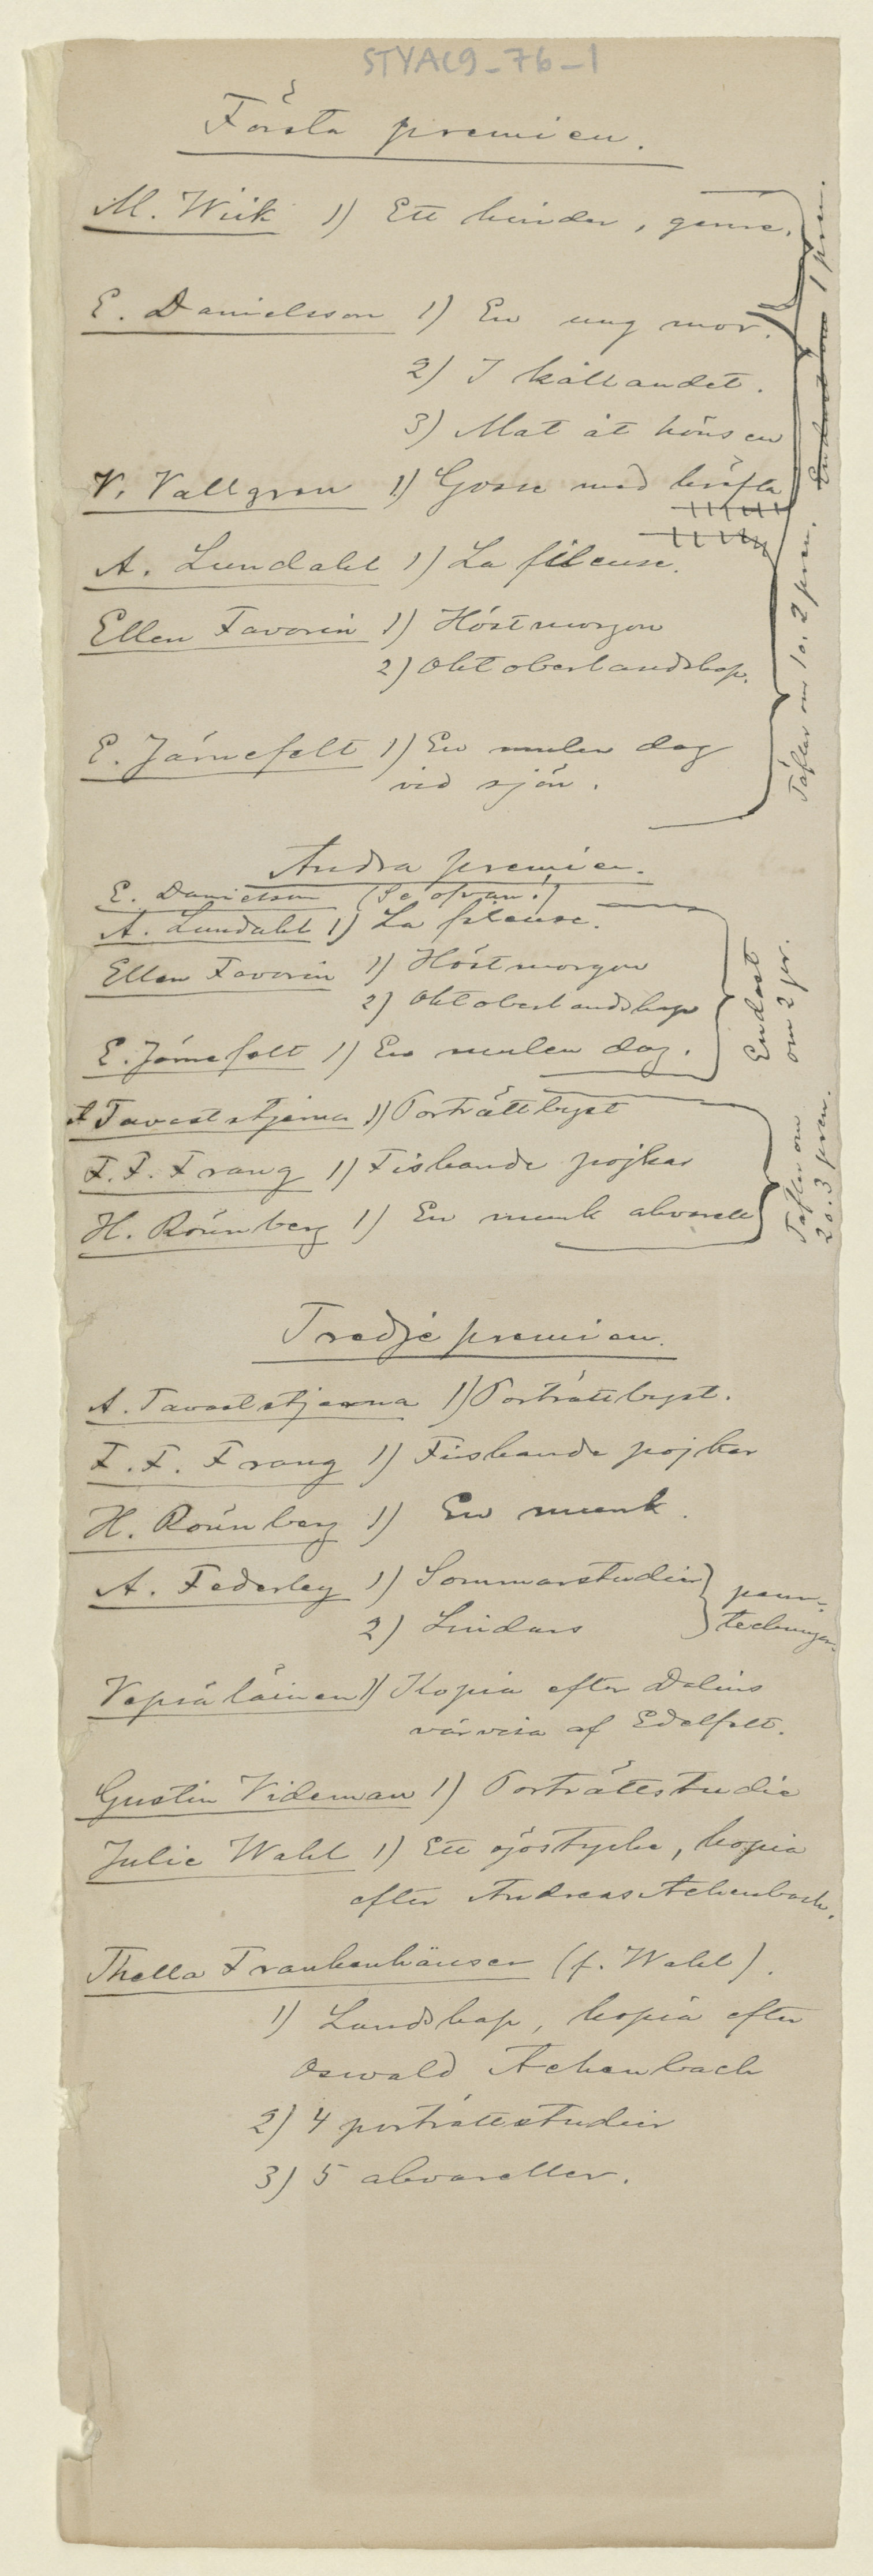 STYAC9-76-1
Första premien.
M. Wiik 1) Ett hinder, genre.
E. Danielsson 1) En ung mor.
2) I kållandet.
3) Mat åt hönsen
V. Vallgren 1) Gosse med kräfta
A. Lundahl 1) La fileuse.
Ellen Favorin 1) Höstmorgon
2) Oktoberlandskap.
E. Järnefelt 1) En mulen dag
vid sjön.
Endast om 1 prem.
Täfla om 1 o. 2 prem.
Andra premien.
E. Danielsson (Se ofvan!)
A. Lundahl 1) La fileuse.
Ellen Favorin 1) Höstmorgon
2) Oktoberlandskap
E. Järnefelt 1) En mulen dag.
Endast
om 2 pr.
A Tavaststjerna 1) Porträttbyst
F. F. Frang 1) Fiskande pojkar
H. Rönnberg 1) En munk akvarell
Täfla om
2 o. 3 prem.
Tredje premien.
A. Tavaststjerna 1) Porträttbyst.
F. F. Frang 1) Fiskande pojkar
H. Rönnberg 1) En munk.
A. Federley 1) Sommarstudier
2) Lindans
penn-
teckningar
Vepsäläinen 1) Kopia efter Delins
vårvisa af Edelfelt.
Gustin Videman 1) Porträttstudie
Julie Wahl 1) Ett sjöstycke, kopia
efter Andreas Achenbach.
Thella Frankenhäuser (f. Wahl).
1) Landskap, kopia efter
Oswald Achenbach
2) 4 porträttstudier
3) 5 akvareller.